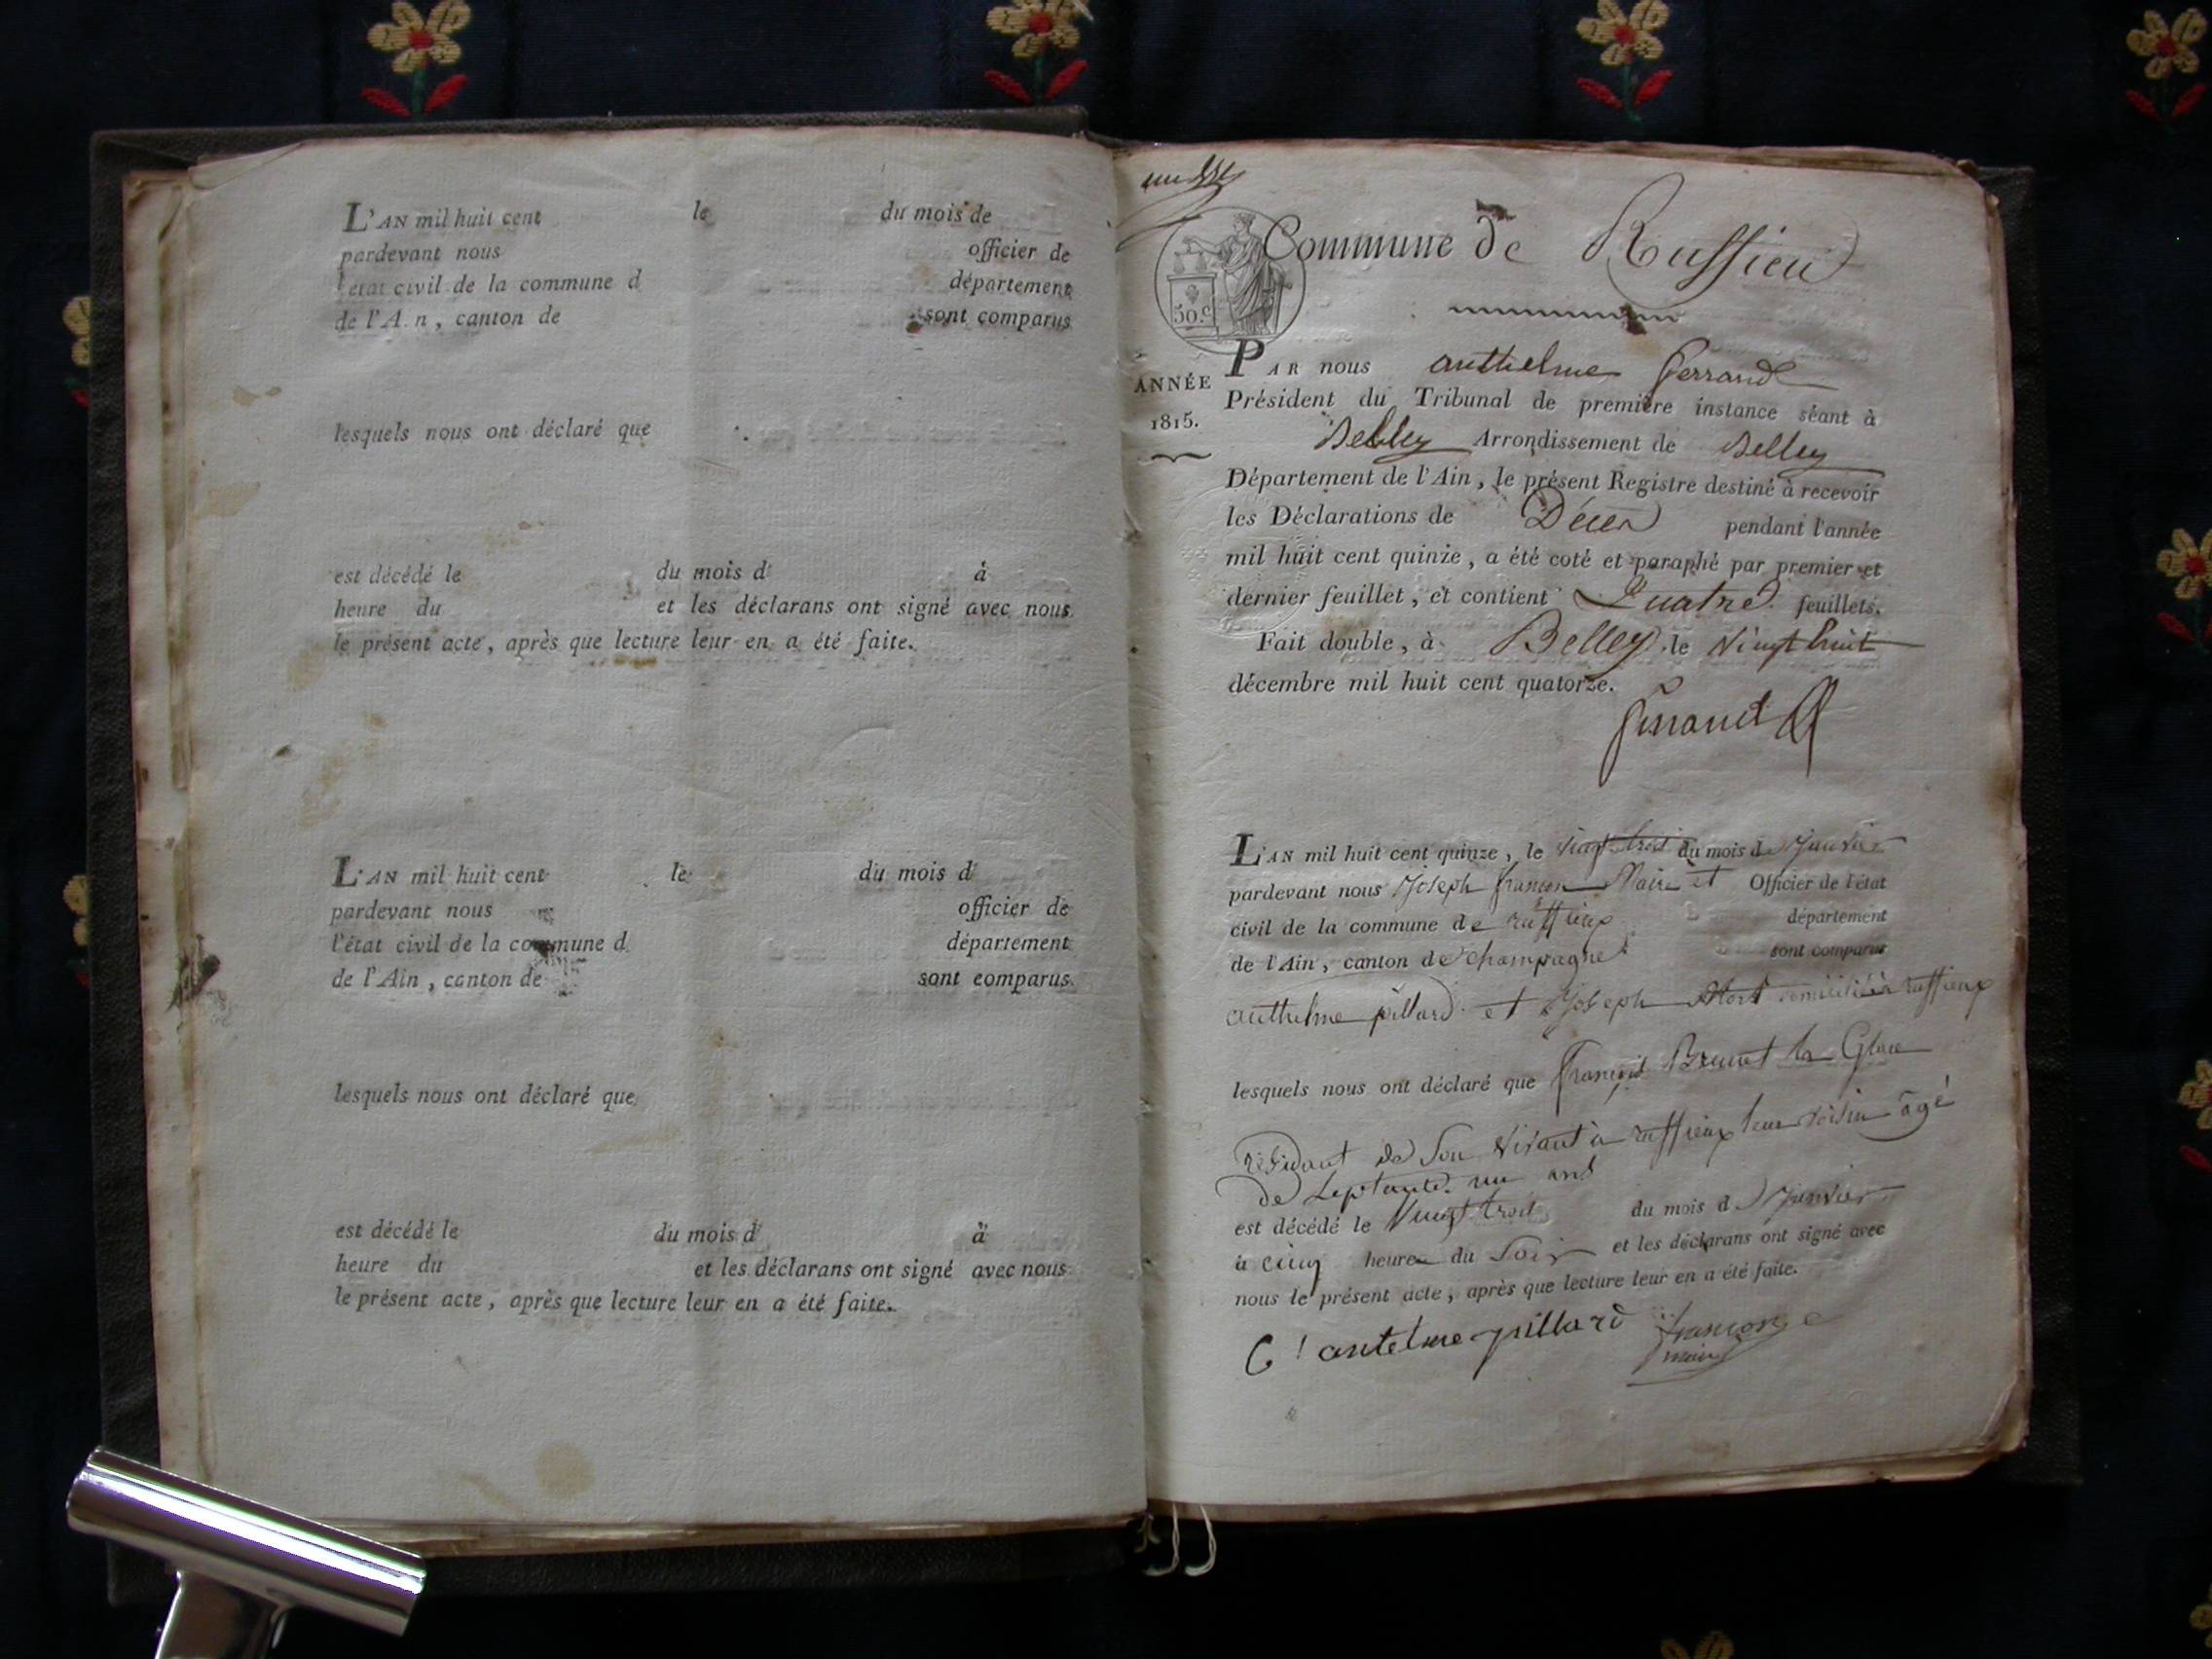 L'AN mil huit cent le du mois de
pardevant nous officier de
l'état civil de la commune d département
de l'A n, canton de sont comparus
lesquels nous ont déclaré que
est décédé le du mois d à
heure du et les déclarans ont signé avec nous
le présent acte, après que lecture leur en a été faite.
L'AN mil huit cent le du mois d
pardevant nous officier de
l'état civil de la commune d département
de l'Ain, canton de sont comparus
lesquels nous ont déclaré que
est décédé le du mois d à
heure du et les déclarans ont signé avec nous
le présent acte, après que lecture leur en a été faite.
Commune de Ruffieu
50.c
ANNÉE
1815.
PAR nous anthelme ferrand
Président du Tribunal de première instance séant à
Belley Arrondissement de Belley
Département de l'Ain, le présent Registre destiné à recevoir
les Déclarations de Décès pendant l'année
mil huit cent quinze, a été coté et paraphé par premier et
dernier feuillet, et contient Quatre feuillets.
Fait double, à Belley le vingt huit
décembre mil huit cent quatorze.
ferrand
L'AN mil huit cent quinze, le vingt trois du mois de Janvier
pardevant nous Joseph françon Maire et Officier de l'état
civil de la commune de ruffieux département
de l'Ain, canton de champagne sont comparus
anthelme pillard et Joseph domiciliés à ruffieux
lesquels nous ont déclaré que françois Brunet la Glace
résidant de son vivant à ruffieux leur voisin âgé
de septante un ans
est décédé le vingt trois du mois d Janvier
à cinq heure du soir et les déclarans ont signé avec
nous le présent acte, après que lecture leur en a été faite.
antelme pillard françon
maire